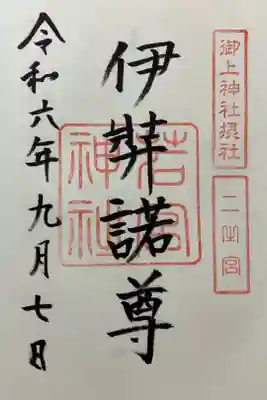 御上神社摂社
二之宮
伊弉諾尊
若宮
神社
令和六年九月七日